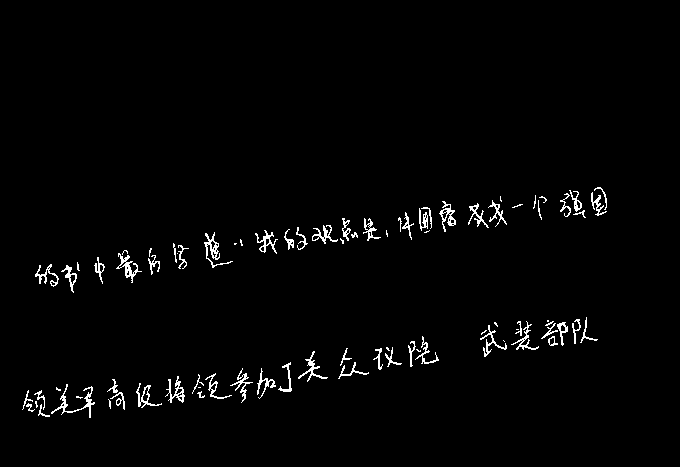 的书中最后写道:“我的观点是,中国需成为一个强国
领美军高级将领参加了美众议院 武装部队